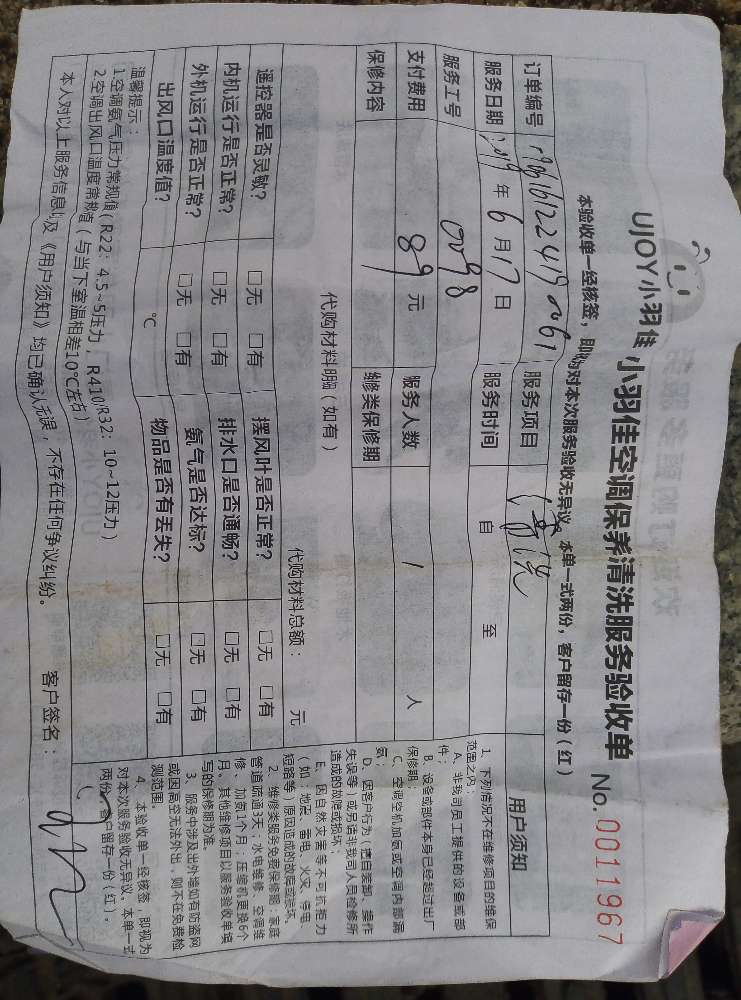 UJOY小羽佳 小羽佳空调保养清洗服务验收单 No. 0011967
本验收单一经核签，即为对本次服务验收无异议。本单一式两份，客户留存一份（红）
订单编号 服务项目 清洗
服务日期 2019 年 6 月 17 日 服务时间 自 至
服务工号 0098
支付费用 89 元 服务人数 1 人
保修内容 维修类保修期
代购材料明细（如有） 代购材料总额： 元
遥控器是否灵敏？ □无 □有 摆风叶是否正常？ □无 □有
内机运行是否正常？ □无 □有 排水口是否通畅？ □无 □有
外机运行是否正常？ □无 □有 氨气是否达标？ □无 □有
出风口温度值？ ℃ 物品是否有丢失？ □无 □有
温馨提示：
1空调氨气压力常规值（R22：4.5~5压力，R410/R32：10~12压力）
2空调出风口温度常规值（与当下室温相差10℃左右）
本人对以上服务信息以及《用户须知》均已确认无误，不存在任何争议纠纷。 客户签名：
用户须知
1、下列情况不在维修项目的维保
范围之内：
A、非我司员工提供的设备或部
件；
B、设备或部件本身已经超过出厂
保修期；
C、空调空机加氨或空调内部漏
氨；
D、因客户行为（擅自装卸、操作
失误等）或另请非我司人员检修所
造成的故障或损坏；
E、因自然灾害等不可抗拒力
（如：地震、雷电、火灾、停电、
短路等）原因造成的故障或损坏。
2、维修类服务免费保修期：家庭
管道疏通3天；水电维修、空调维
修、加氨1个月；压缩机更换6个
月。其他维修项目以服务验收单填
写的保修期为准。
3、服务中涉及出外墙如有防盗网
或因高空无法外出，则不在免费检
测范围。
4、本验收单一经核签，即视为
对本次服务验收无异议。本单一式
两份，客户留存一份（红）。